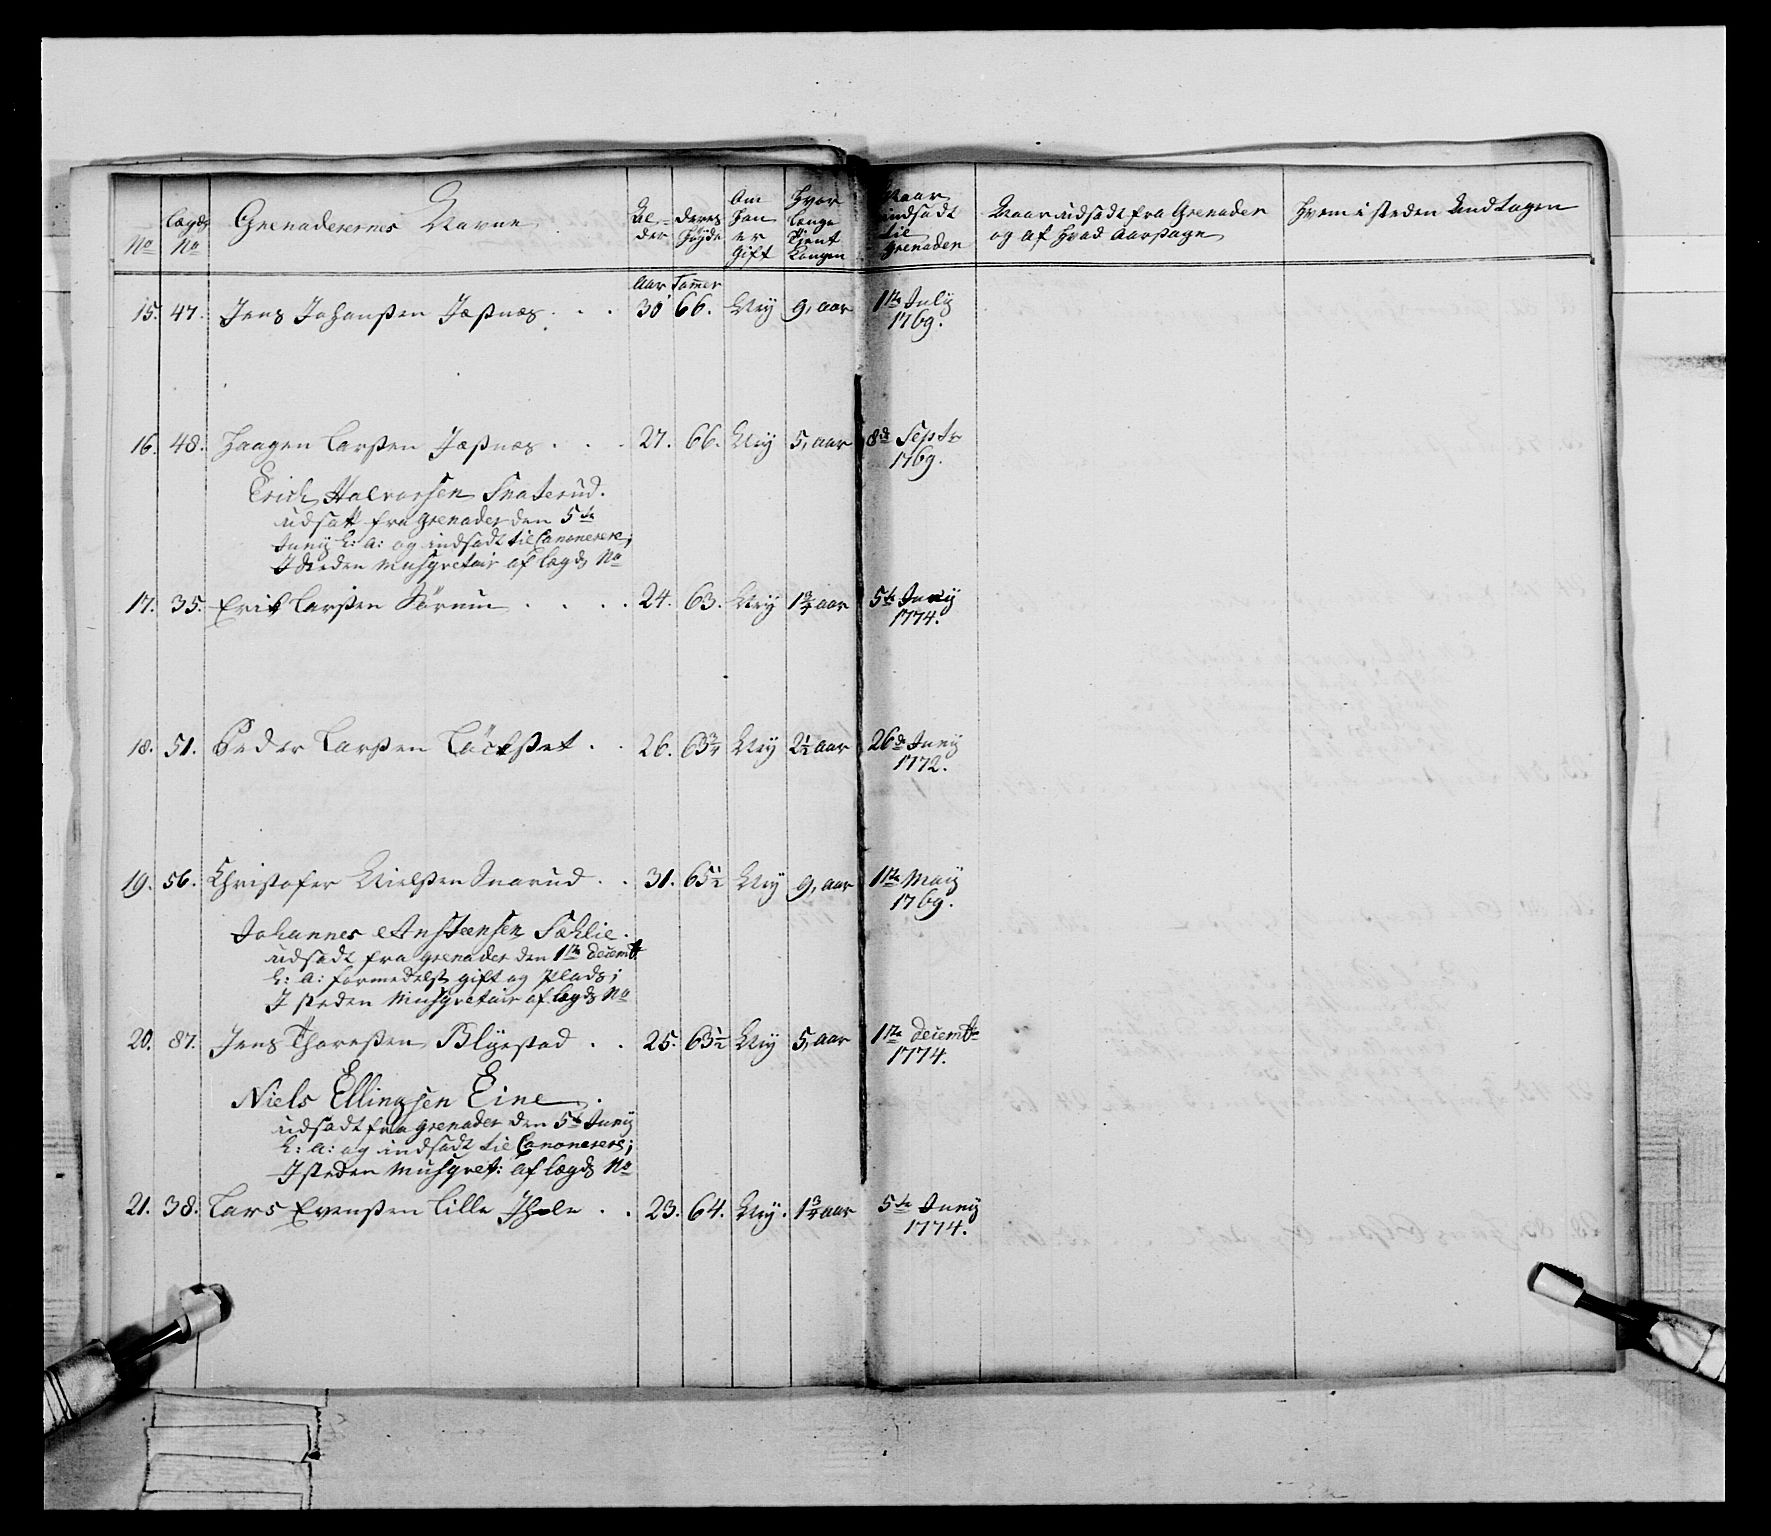 No
Lægds No
Grenaderernes Navne
Al-der
Deres Høyde
Om Han er Gift
Hvor længe Tient Kongen
Naar indsadt til Grenaden
Naar udsadt fra Grenader og af Hvad Aarsage
Hvem i steden Andtagen
Aar Tomer
15. 47. Jens Johanßen Jæßnæs . . . 30 66. Ney 9, aar 1te July 1769.
16. 48. Haagen Larßen Jæßnæs . . . 27. 66. Ney 5, aar 8de Septr 1769.
Erich Halvorsen Snaterud.
udsatt fra grenader den 5te
Juny h: a: og indsadt til Canonerere;
I steden Musqvetair af Lægds No
17. 35. Erik Larßen Sørum . . . . 24. 63. Ney 1 3/4 aar 5te Juny 1774.
18. 51. Peder Larßen Löckßet . . 26. 63 3/4 Ney 2 1/2 aar 26de Juny 1772.
19. 56. Christofer Nielßen Snarud . . 31. 65 1/2 Ney 9, aar 1te May 1769.
Johannes Ansteensen Sæhlie.
udsadt fra grenader den 1te Decembr
h: a: formedelst gift og Plads;
I steden Musqvetair af Lægds No
20. 87. Jens Thoreßen Blyestad . . 25. 63 1/2 Ney 5, aar 1te Decembr 1774.
Niels Ellingsen Eine.
udsadt fra grenader den 5te Juny
h: a: og indsadt til Canonerere;
I steden Musqvet: af Lægds No
21. 38. Lars Evenßen Lille Ihle . . 23. 64. Ney. 1 3/4 aar 5te Juny 1774.